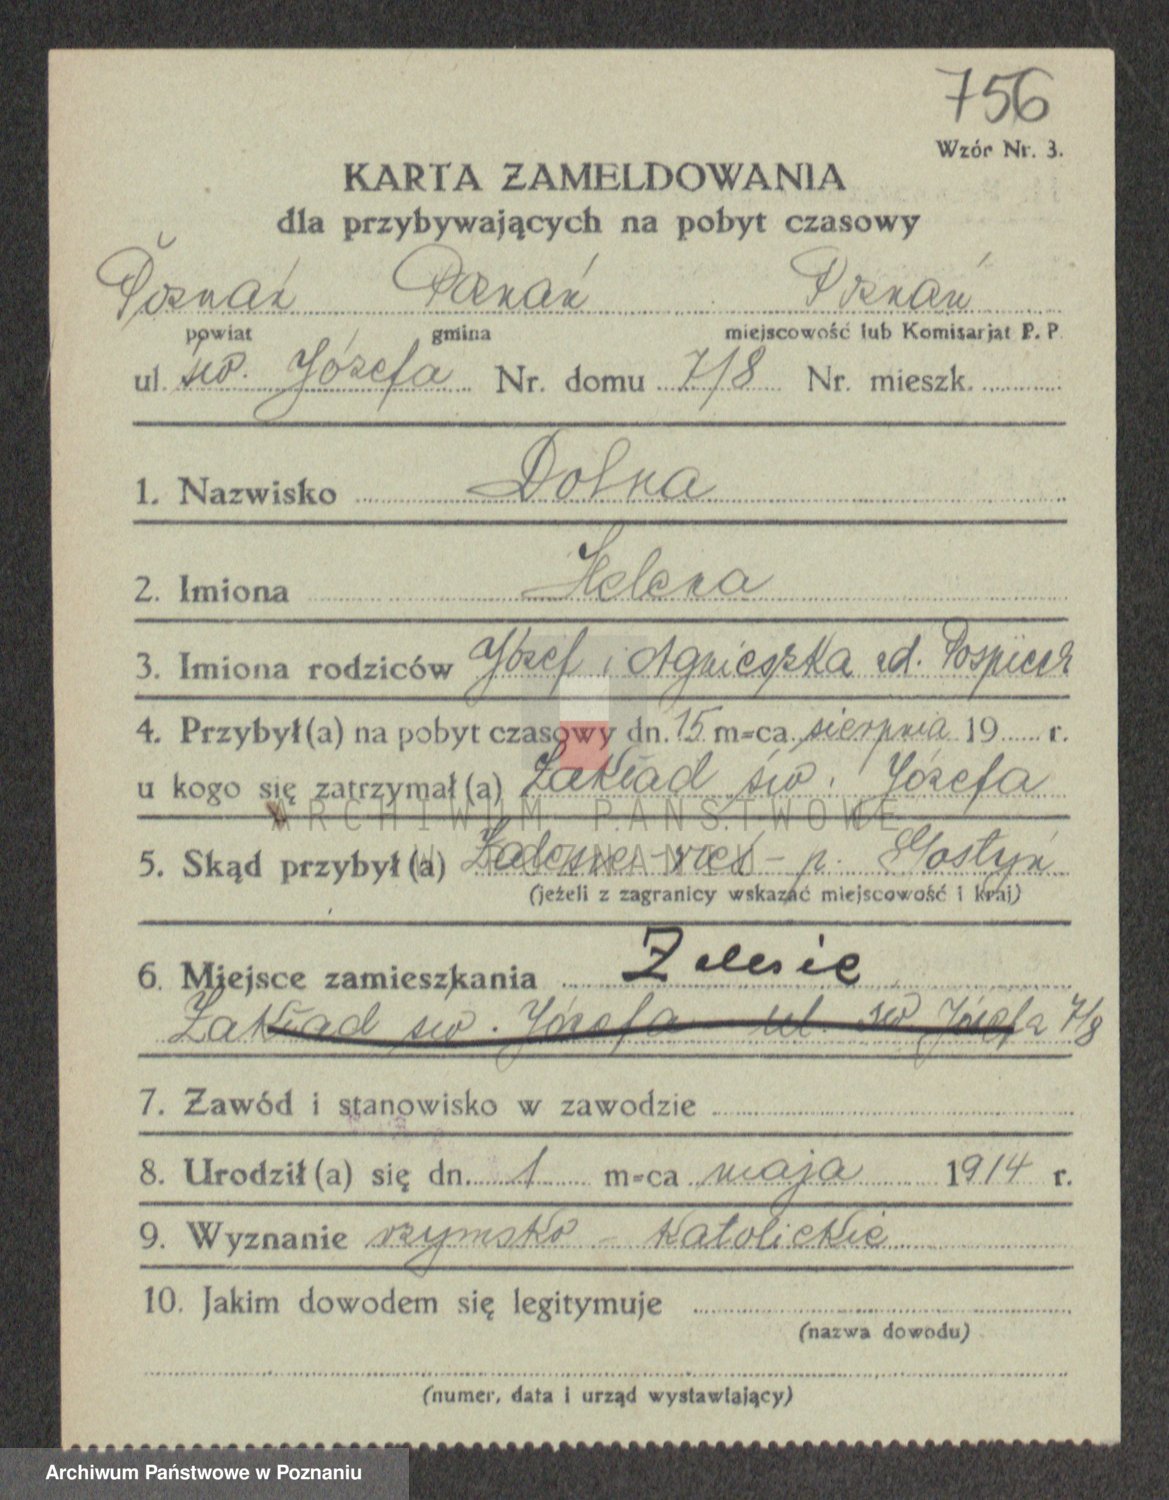 756
Wzór Nr. 3.
KARTA ZAMELDOWANIA
dla przybywających na pobyt czasowy
Poznań Poznań Poznań
powiat gmina miejscowość lub Komisarjat P. P.
ul. św. Józefa Nr. domu 7/8 Nr. mieszk.
1. Nazwisko Dolna
2. Imiona Helena
3. Imiona rodziców Józef i Agnieszka zd.
4. Przybył(a) na pobyt czasowy dn. 15 m-ca sierpnia 19 r.
u kogo się zatrzymał(a) Zakład św. Józefa
ARCHIWUM PAŃSTWOWE
5. Skąd przybył(a) wieś - p. Gostyń
W POZNANIU
(jeżeli z zagranicy wskazać miejscowość i kraj)
6. Miejsce zamieszkania Zalesie
Zakład św. Józefa ul. św Józefa 7/8
7. Zawód i stanowisko w zawodzie
8. Urodził(a) się dn. 1 m-ca maja 1914 r.
9. Wyznanie rzymsko - katolickie
10. Jakim dowodem się legitymuje
(nazwa dowodu)
(numer, data i urząd wystawiający)
Archiwum Państwowe w Poznaniu